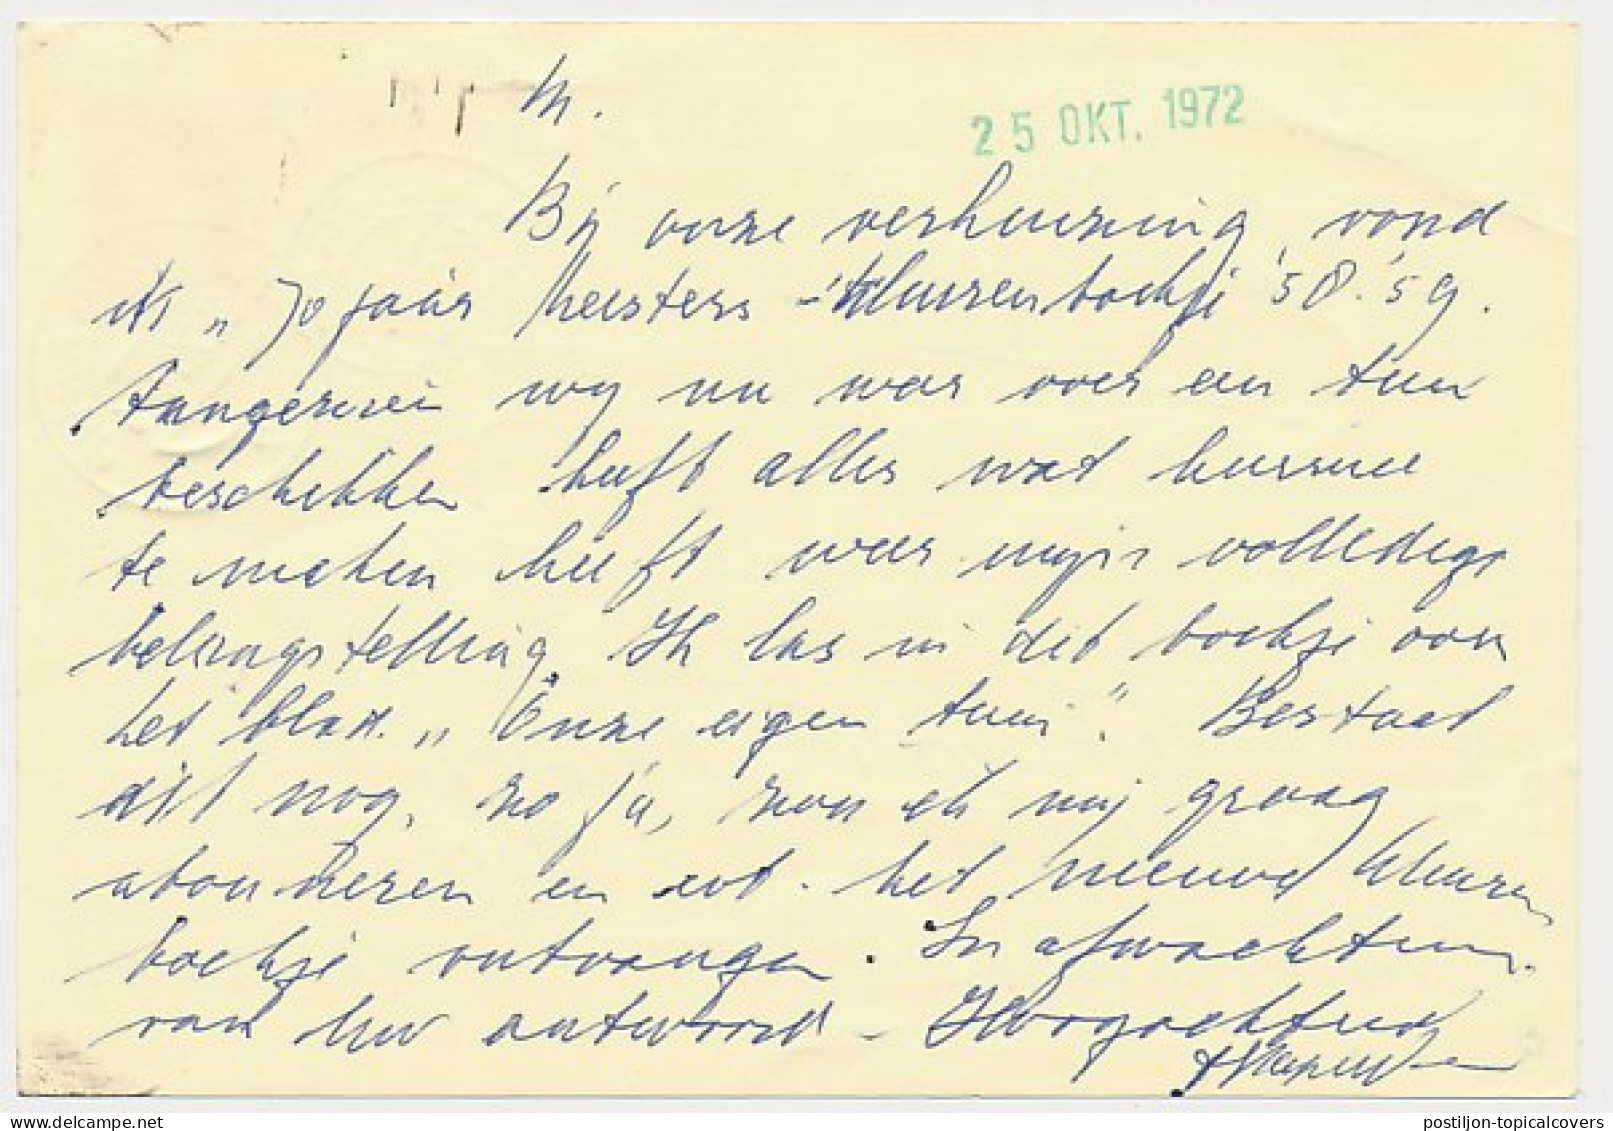 M.
25 OKT. 1972
Bij onze verhuizing, vond
ik „70 jaar Meisters - Kleurenboekje '58-'59.
Aangezien wij nu weer over een tuin
beschikken heeft alles wat hiermee
te maken heeft weer mijn volledige
belangstelling. Ik las in dit boekje van
het blad „Onze eigen tuin". Bestaat
dit nog, zo ja, zou ik mij graag
abonneren en evt. het nieuwe kleuren
boekje ontvangen. In afwachting
van Uw antwoord - Hoogachtend
postiljon-topicalcovers.com